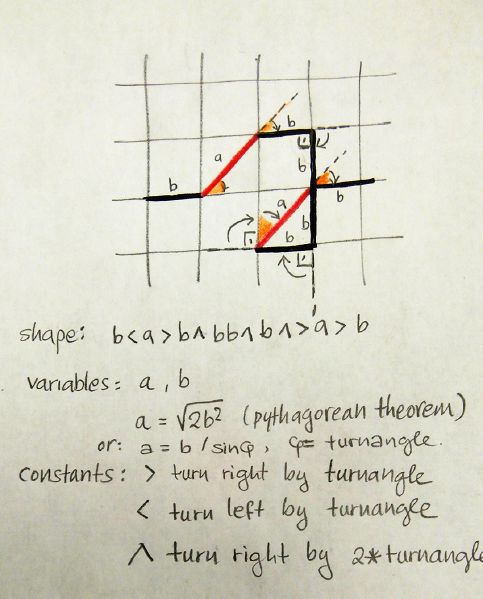 b
a
b
b
a
b
b
b
shape: b<a>b∧bb∧b∧>a>b
variables: a, b
a = √2b² (pythagorean theorem)
or: a = b / sinφ, φ= turnangle.
constants: > turn right by turnangle
< turn left by turnangle
∧ turn right by 2*turnangle